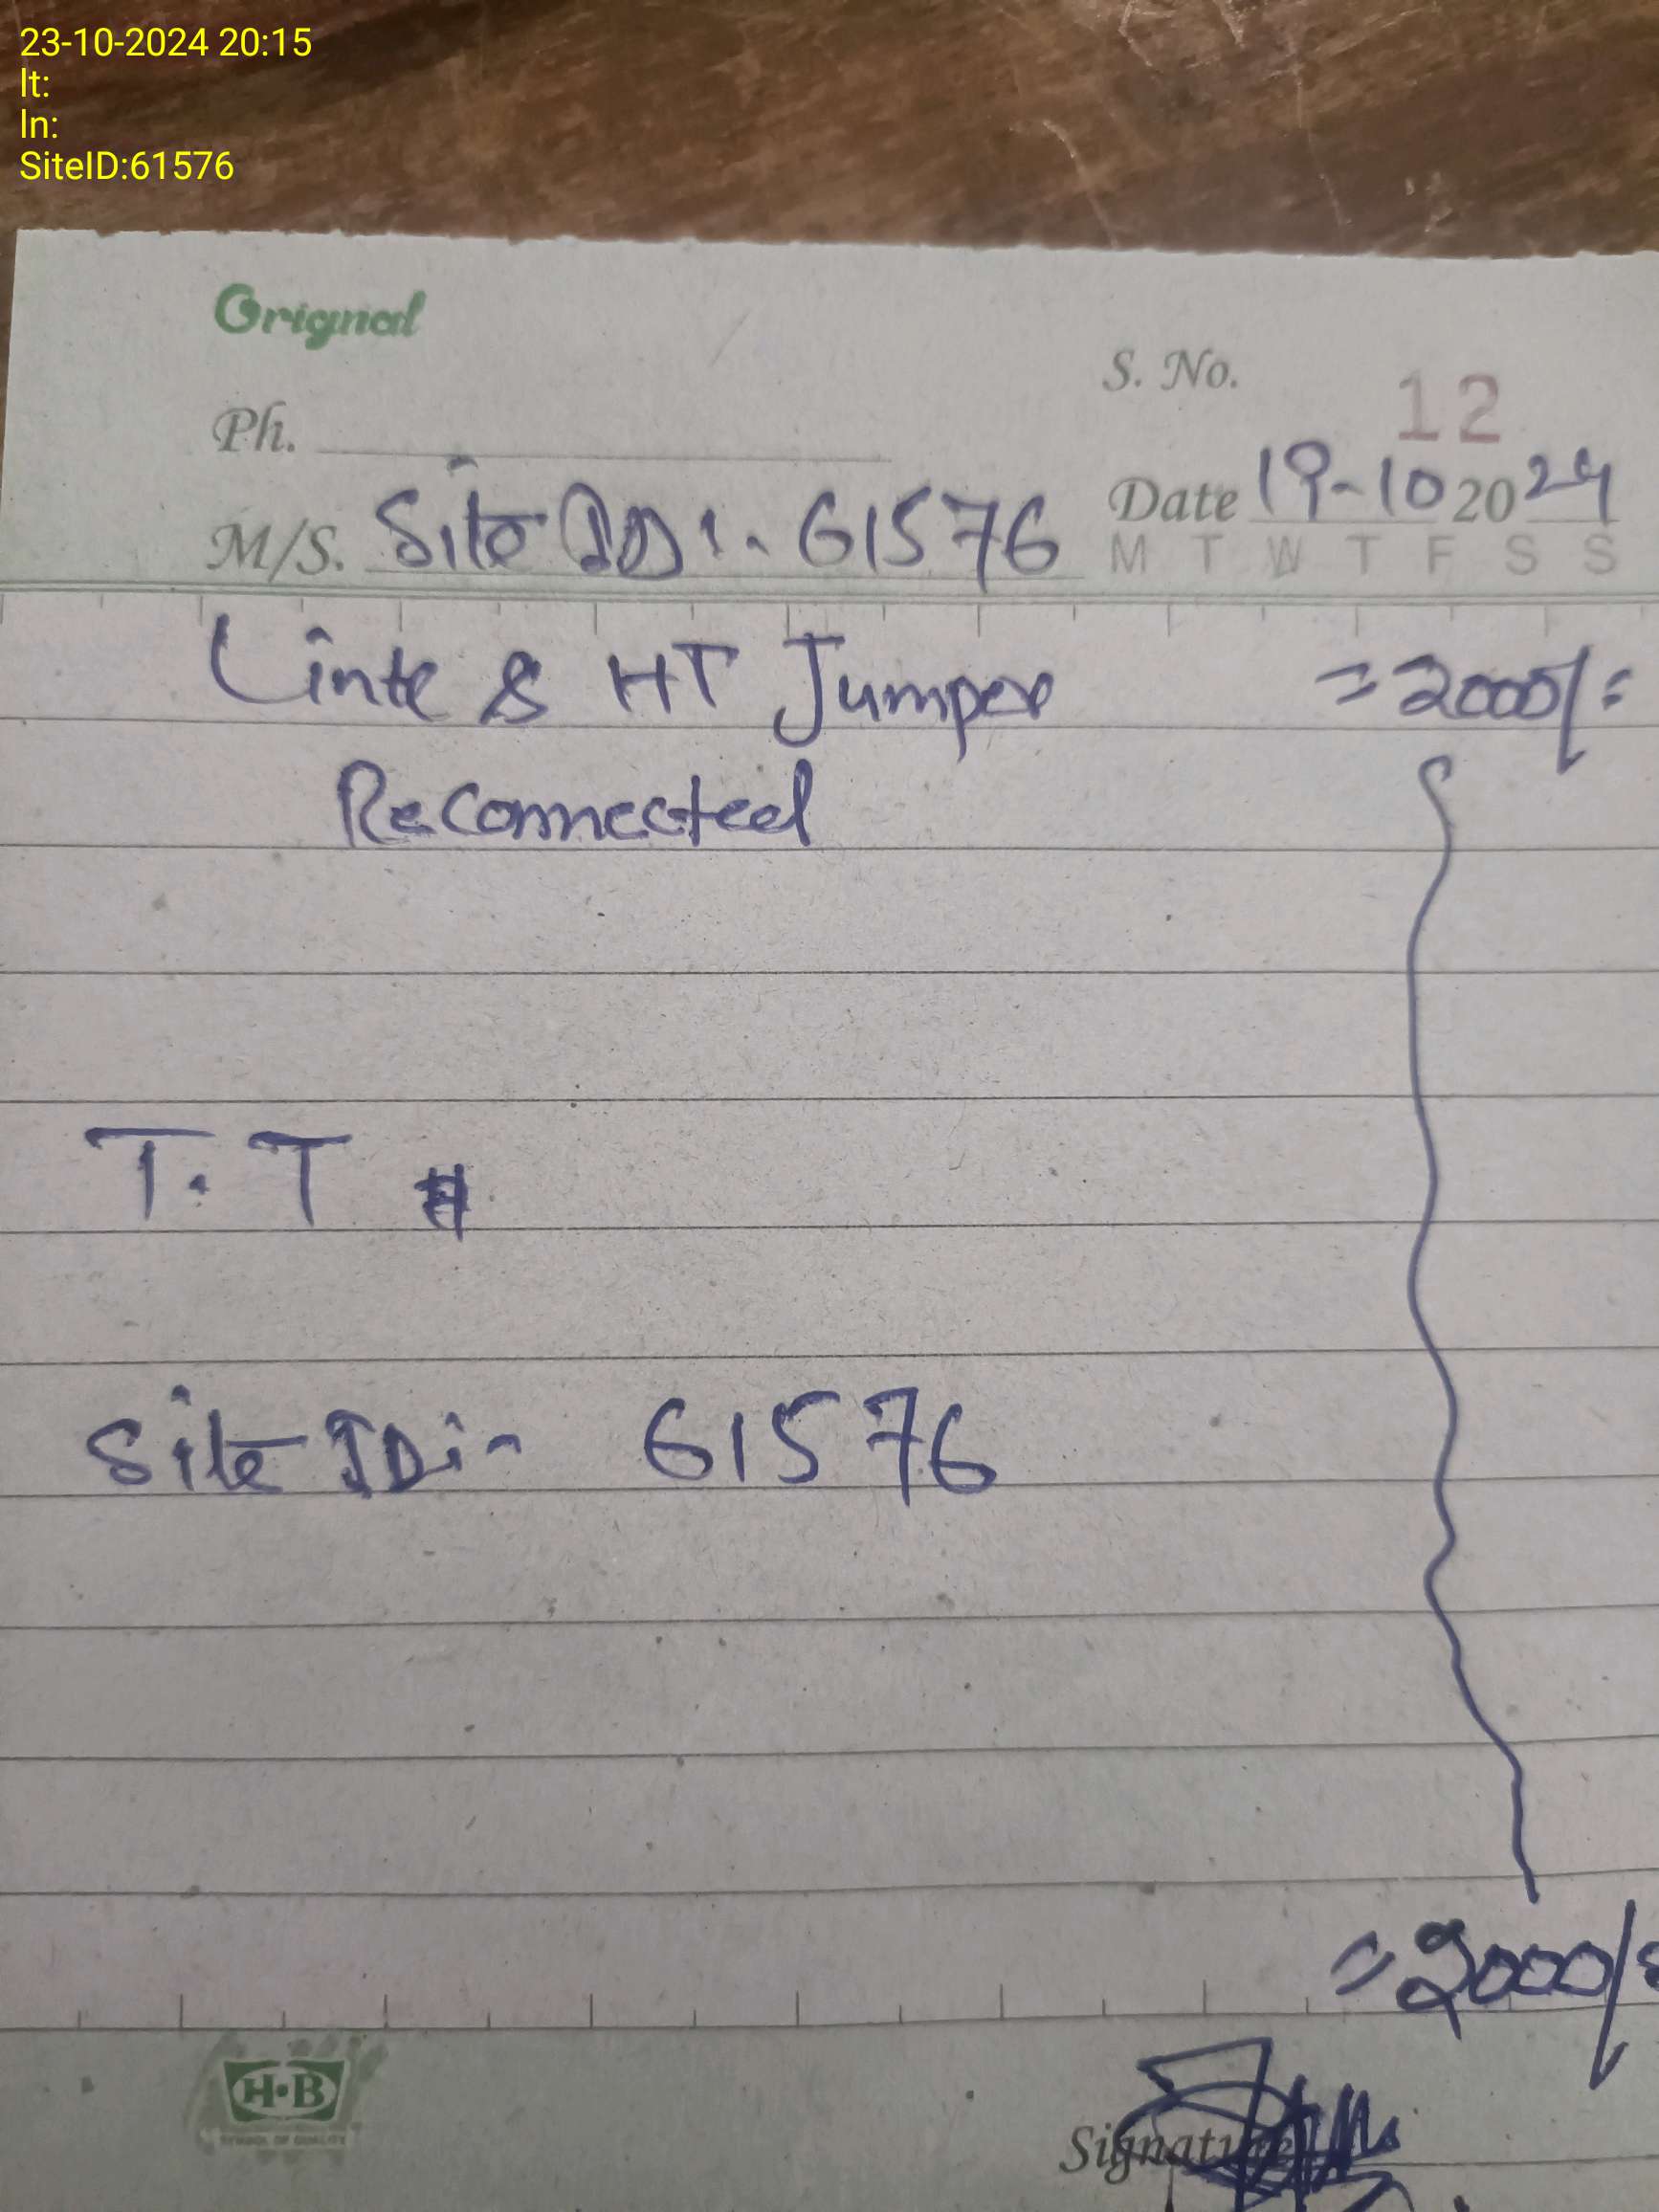 23-10-2024 20:15
lt:
ln:
SiteID:61576
Orignal
S. No. 12
Ph.
Date 19-10 2024
M/S. Site ID:- 61576
M T W T F S S
Link & HT Jumper =2000/=
Reconnected
T.T #
Site ID:- 61576
=2000/=
H·B
SYMBOL OF QUALITY
Signature